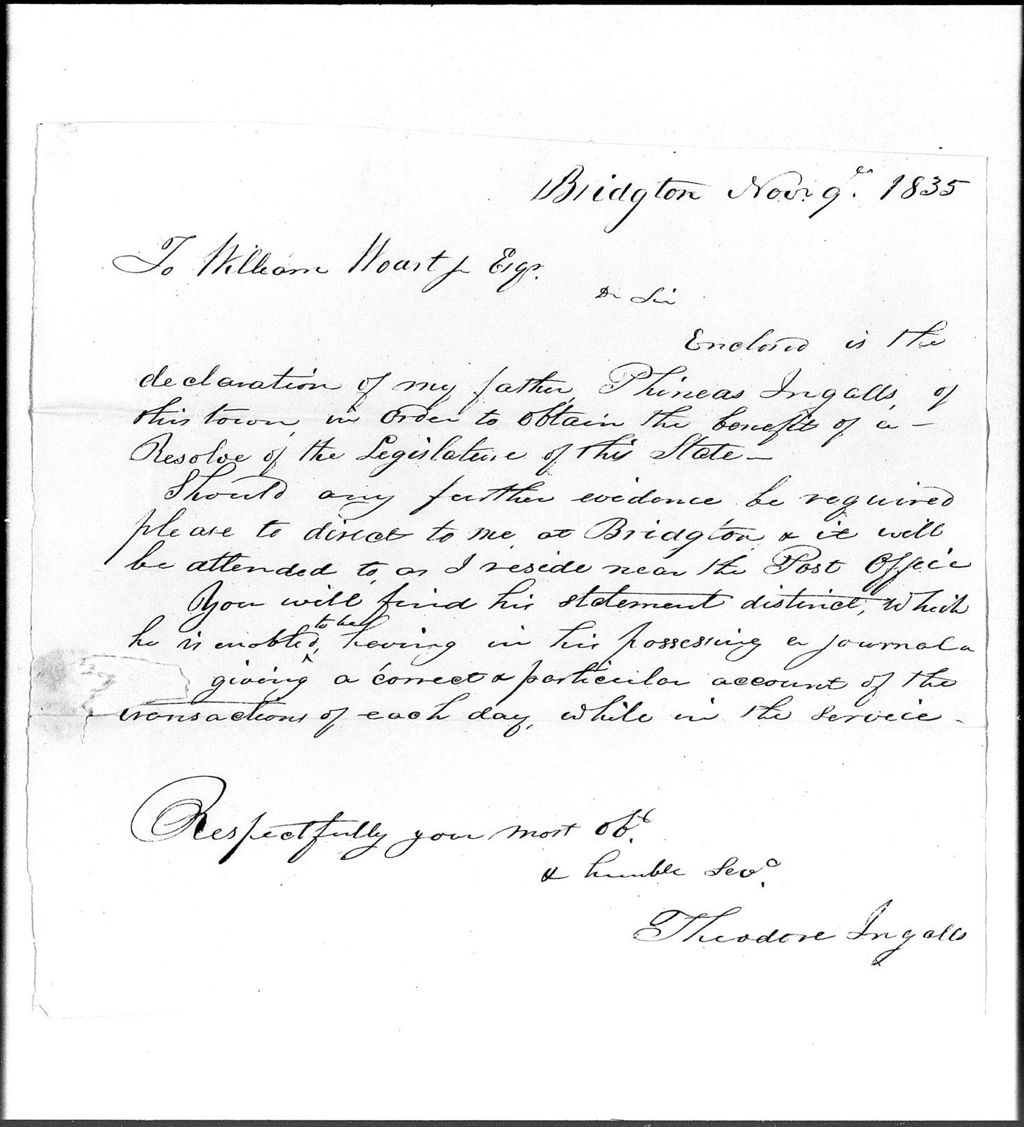 Bridgton Nov. 9th. 1835
To William Woart Jr Esqr.
Dr Sir
Enclosed is the
declaration of my father, Phineas Ingalls, of
this town, in order to obtain the benefit of a
Resolve of the Legislature of this State
Should any further evidence be required
please to direct to me at Bridgton & it will
be attended to, as I reside near the Post Office
You will find his statement distinct, which
he is enabled to be, having in his possession a journal
giving a correct & particular account of the
transactions of each day, while in the service.
Respectfully your most obt.
& humble Servt.
Theodore Ingalls